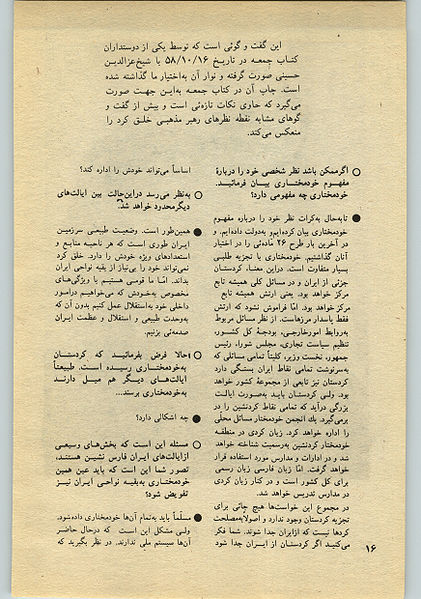 این گفت و گوئی است که توسط یکی از دوستداران
کتاب جمعه در تاریخ ۵۸/۱۰/۱۶ با شیخ‌عزالدین
حسینی صورت گرفته و نوار آن به‌اختیار ما گذاشته شده
است. چاپ آن در کتاب جمعه به‌این جهت صورت
می‌گیرد که حاوی نکات تازه‌ئی است و بیش از گفت و
گوهای مشابه نقطه نظرهای رهبر مذهبی خلق کرد را
منعکس می‌کند.
○ اگرممکن باشد نظر شخصی خود را دربارهٔ
مفهوم خودمختاری بیان فرمائید.
خودمختاری چه مفهومی دارد؟
● تابه‌حال به‌کرات نظر خود را درباره مفهوم
خودمختاری بیان کرده‌ایم و به‌دولت داده‌ایم. و
در آخرین بار طرح ۲۶ ماده‌ئی را در اختیار
آنان گذاشتیم. خودمختاری با تجزیه طلبی
بسیار متفاوت است. دراین معنا، کردستان
جزئی از ایران و در مسائل کلی همیشه تابع
مرکز خواهد بود. یعنی ارتش همیشه تابع
مرکز خواهد بود. اما فراموش نشود که ارتش
فقط پاسدار مرزهاست. از نظر مسائل مربوط
به‌روابط امورخارجی، بودجهٔ کل کشور،
تنظیم سیاست تجاری، مجلس شورا، رئیس
جمهور، نخست وزیر، کلیتاً تمامی مسائلی که
به‌سرنوشت تمامی نقاط ایران بستگی دارد
کردستان نیز تابعی از مجموعهٔ کشور خواهد
بود. ولی کردستان باید به‌صورت ایالت
بزرگی درآید که تمامی نقاط کردنشین را در
برمی‌گیرد. یك انجمن خودمختار مسائل محلی
را اداره خواهد کرد. زبان کردی در منطقه
خودمختار کردنشین به‌رسمیت شناخته خواهد
شد و در ادارات و مدارس مورد استفاده قرار
خواهد گرفت. امّا زبان فارسی زبان رسمی
برای کل کشور است و در کنار زبان کردی
در مدارس تدریس خواهد شد.
در مجموع این خواست‌ها هیچ جائی برای
تجزیه کردستان وجود ندارد و اصولاً به‌مصلحت
کردها نیست که ازایران جدا شوند. شما فکر
می‌کنید اگر کردستان از ایران جدا شود
اساساً می‌تواند خودش را اداره کند؟
○ به‌نظر می‌رسد دراین‌حالت بین ایالت‌های
دیگر محدود خواهد شد.
● همین‌طور است. وضعیت طبیعی سرزمین
ایران طوری است که هر ناحیه منابع و
استعدادهای ویژه خودش را دارد. خلق کرد
نمی‌تواند خود را بی‌نیاز از بقیه نواحی ایران
بداند. امّا ما قومی هستیم با ویژگی‌های
مخصوص به‌خودش که می‌خواهیم درامور
داخلی خود به‌استقلال عمل کنیم بدون آن که
به‌وحدت طبیعی و استقلال و عظمت ایران
صدمه‌ئی بزنیم.
○ حالا فرض بفرمائید که کردستان
به‌خودمختاری رسیده است. طبیعتاً
ایالت‌های دیگر هم میل دارند
به‌خودمختاری برسند...
● چه اشکالی دارد؟
○ مسئله این است که بخش‌های وسیعی
ازایالت‌های ایران فارس نشین هستند،
تصور شما این است که باید عین همین
خودمختاری به‌بقیه نواحی ایران نیز
تفویض شود؟
● مسلّماً باید به‌تمام آن‌ها خودمختاری داده‌شود.
ولی مشکل این است که درحال حاضر
آن‌ها سیستم ملی ندارند. در نظر بگیرید که
۱۶